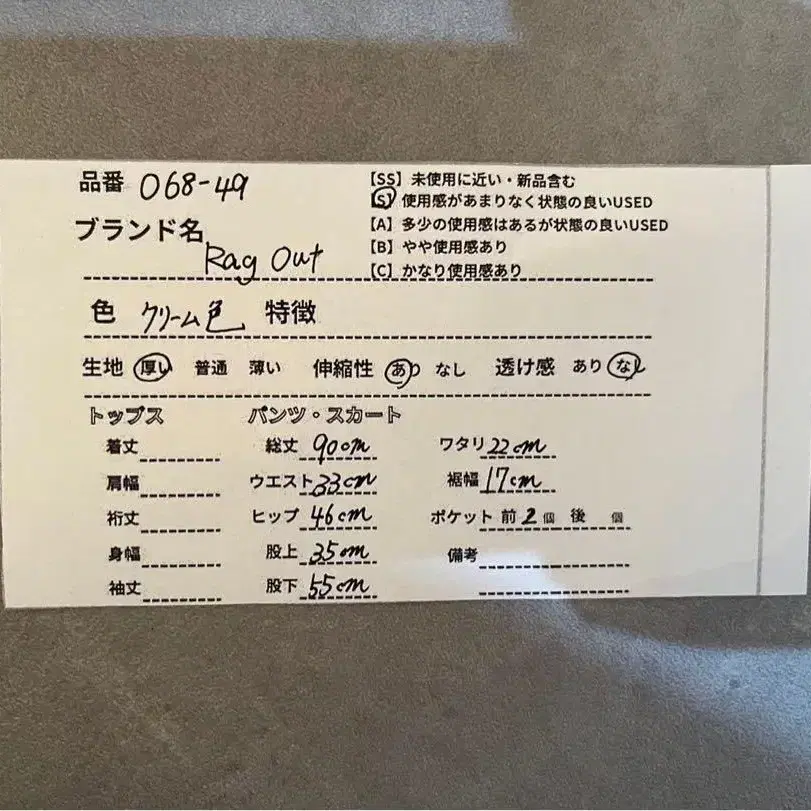 品番 068-49
ブランド名 Rag Out
【SS】未使用に近い・新品含む
【S】使用感があまりなく状態の良いUSED
【A】多少の使用感はあるが状態の良いUSED
【B】やや使用感あり
【C】かなり使用感あり
色 クリーム色 特徴
生地 厚い 普通 薄い 伸縮性 あり なし 透け感 あり なし
トップス パンツ・スカート
着丈 総丈 90cm ワタリ 22cm
肩幅 ウエスト 33cm 裾幅 17cm
裄丈 ヒップ 46cm ポケット 前 2個 後 個
身幅 股上 35cm 備考
袖丈 股下 55cm